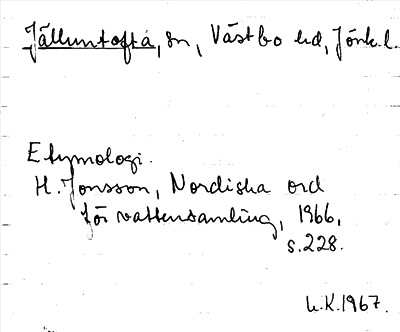 Jälluntofta, sn, Västbo hd, Jönk.l.
Etymologi.
H. Jonsson, Nordiska ord
för vattensamling, 1966,
s.228.
L.K.1967.